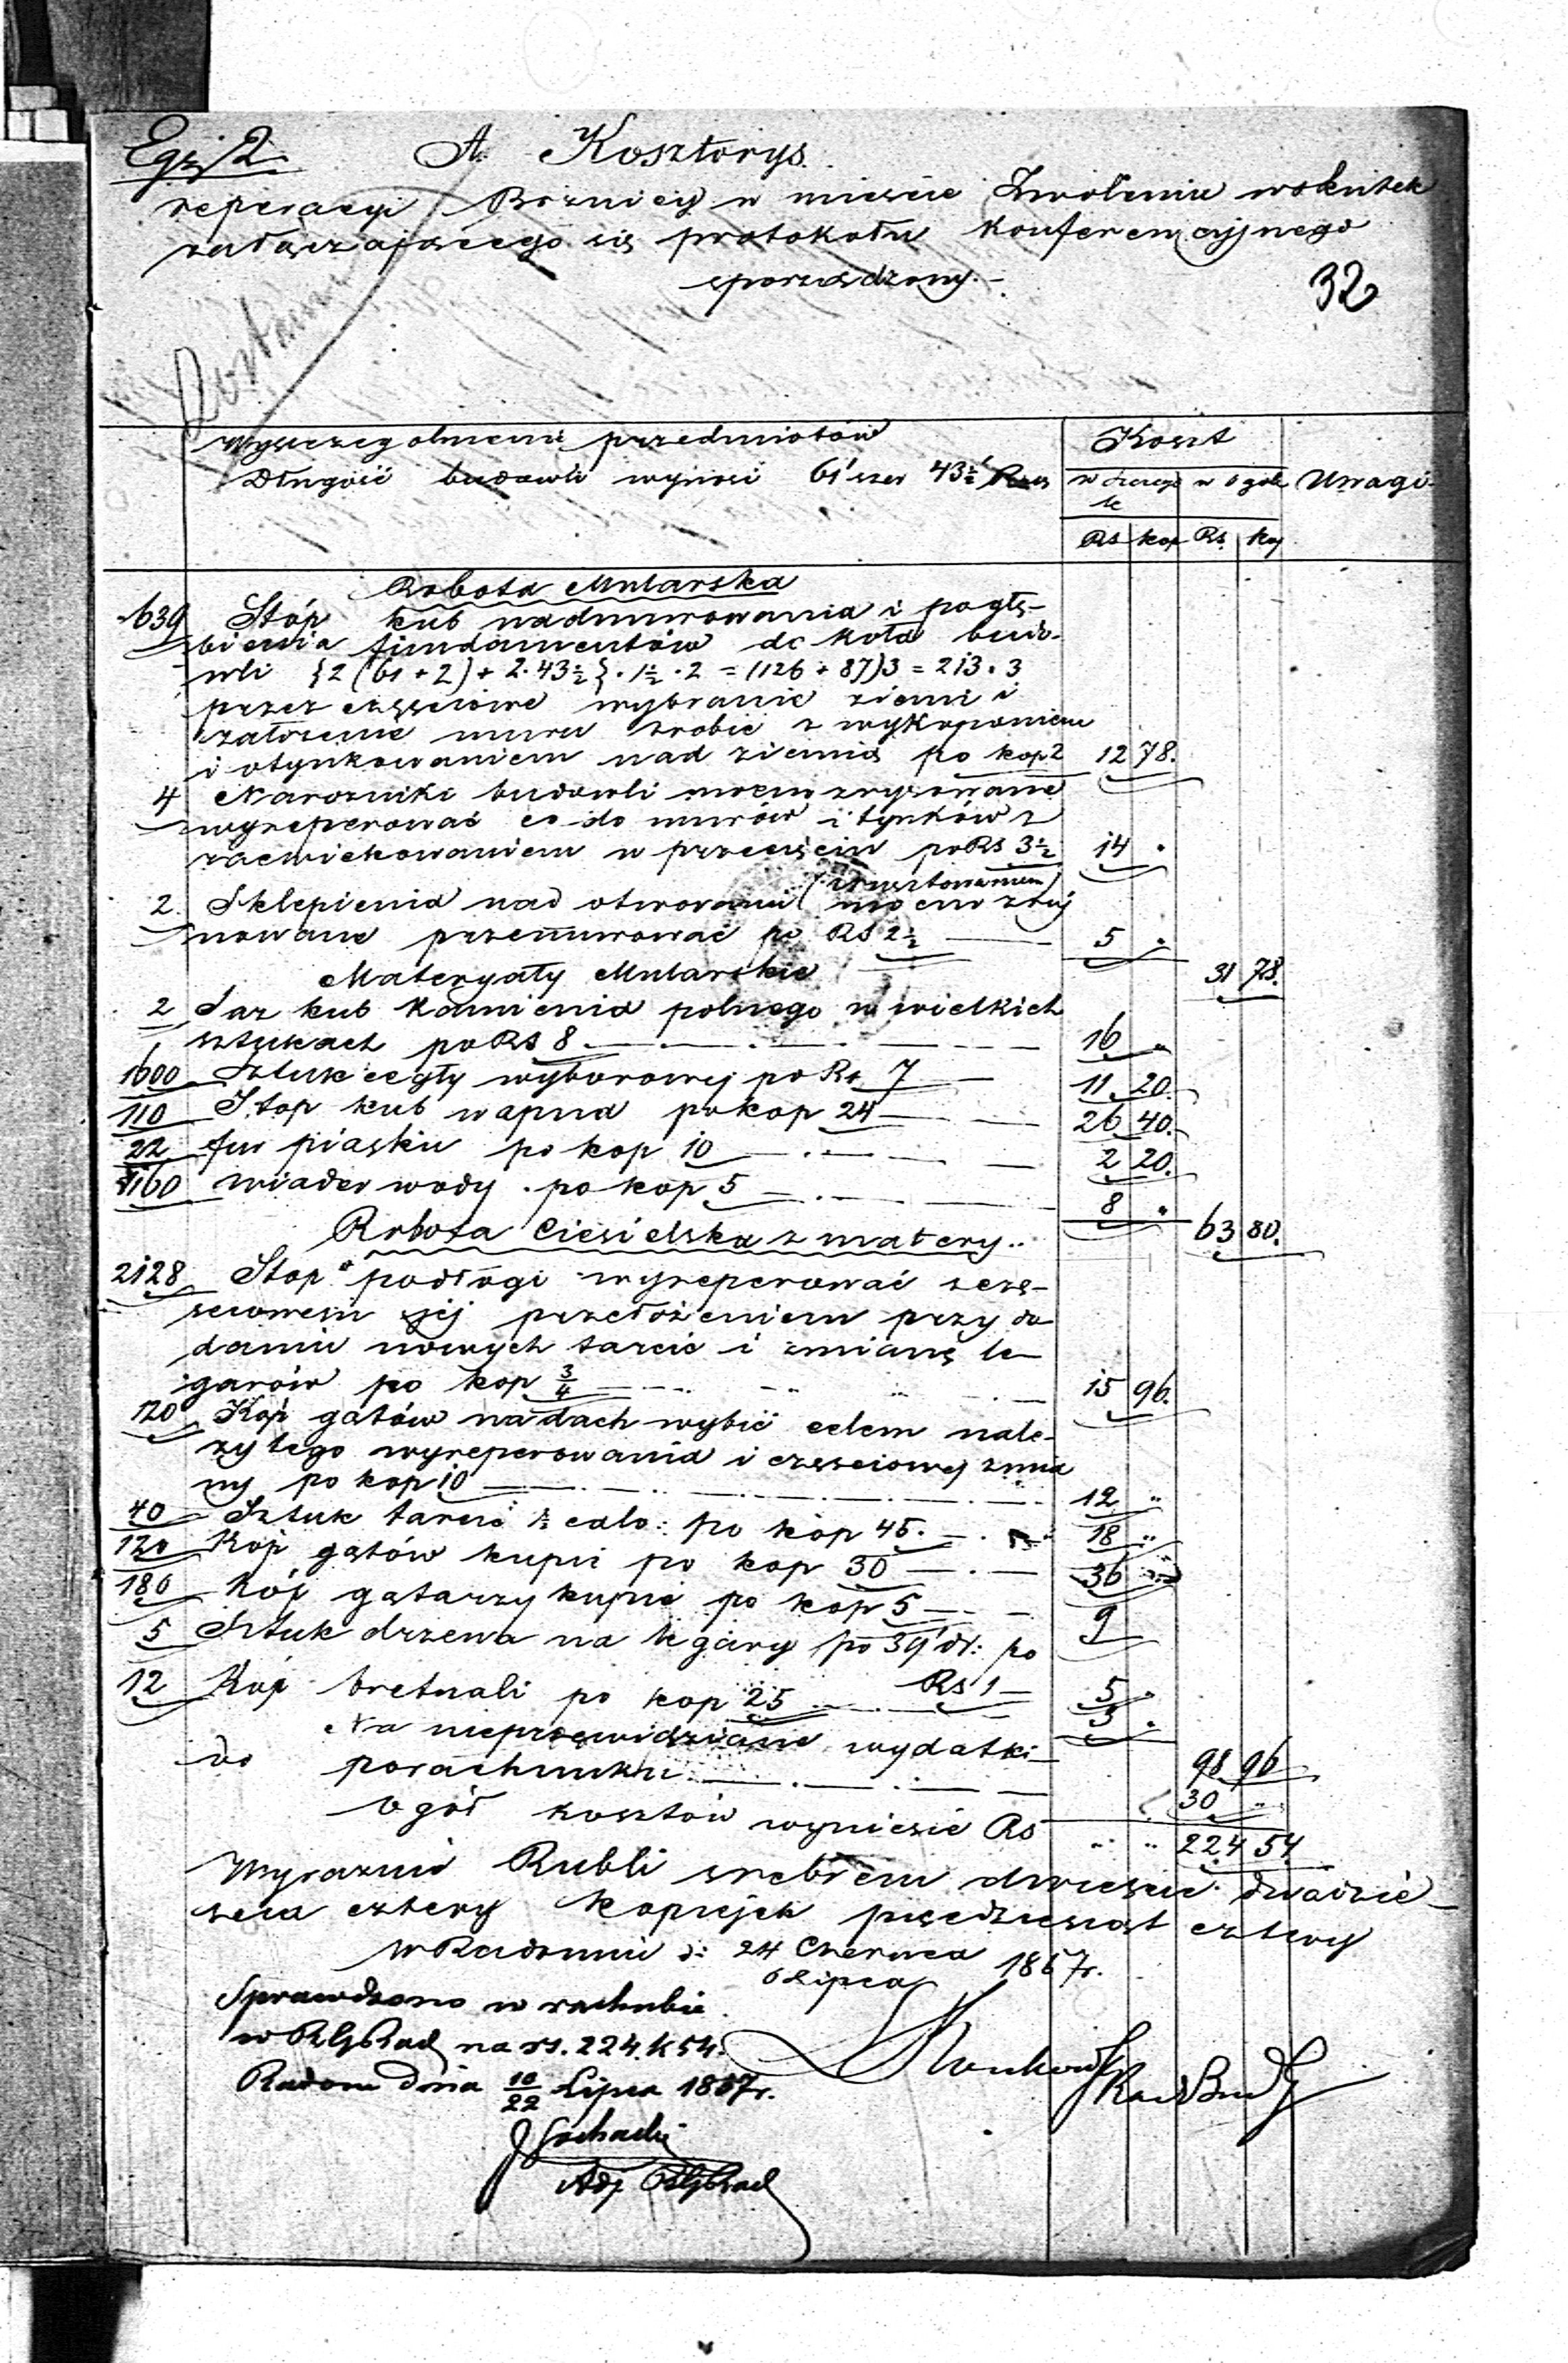 Egz 2. A. Kosztorys.
reperacyi Bóżnicy w mieście Zwoleniu wskutek
załączającego się protokołu Konferencyjnego
sporządzony.-
32
Wyszczegolnienie przedmiotów
Długość budowli wynosi 61' szer 43½'
Koszt
w szczególe w ogóle Uwagi
Rs kop Rs. Kop
Robota Mularska
639 Stóp kub nadmurowania i pogłę-
bienia fundamentów do koła budo-
wli {2(61+2)+2.43½}.1½.2=(126+87)3=213.3
przez częściowe wybranie ziemi i
założenie muru zrobić z wykopaniem
i otynkowaniem nad ziemią po kop 2 12 78.
4 Narożniki budowli mocno zrysowane
wyreperować co do murów i tynków z
zaćwiekowaniem w przecięciu po Rs 3½ 14 "
2 Sklepienia nad otworami (z rusztowaniem) mocno zruj
nowane przemurować po Rs 2½ — 5 "
31 78.
Materyały Mularskie
2 Saż kub Kamienia polnego w wielkich
sztukach po Rs 8 — 16 "
1600 Sztuk cegły wyborowej po Rs 7 — 11 20.
110 Stop kub wapna po kop 24 — 26 40.
22 fur piasku po kop 10 — 2 20.
160 wiader wody po kop 5 — 8 "
63 80.
Robota Ciesielska z matery..
2128 Stop podłogi wyreperować z czę-
ściowem jej przełożeniem przy do
daniu nowych tarcic i zmianę le-
garów po kop ¾ — 15 96.
120 Kóp gątów na dach wybić celem nale-
żytego wyreperowania i częściowej zmia
ny po kop 10 — 12 "
40 Sztuk tarcic ½ calo: po kop 45. — 18 "
120 Kop gątów kupić po kop 30 — 36 "
180 Kóp gątarzy kupić po kop 5 — 9
5 Sztuk drzewa na legary po 39' dł: po
Rs 1 — 5 "
12 Kóp bretnali po kop 25 — 3 "
98 96
Na nieprzewidziane wydatki
do porachunku — 30 "
Ogół kosztów wyniesie Rs " " 224 54.
Wyraźnie Rubli srebrem dwieście dwadzie-
ścia cztery kopiejek pięćdziesiąt cztery
w Radomiu d: 24 Czerwca
6 Lipca 1867r.
Sprawdzono w rachubie
w RGRad na rs. 224. k 54.
Radom dnia 10/22 Lipca 1867r.
J Sochacki
Adj. RGRad